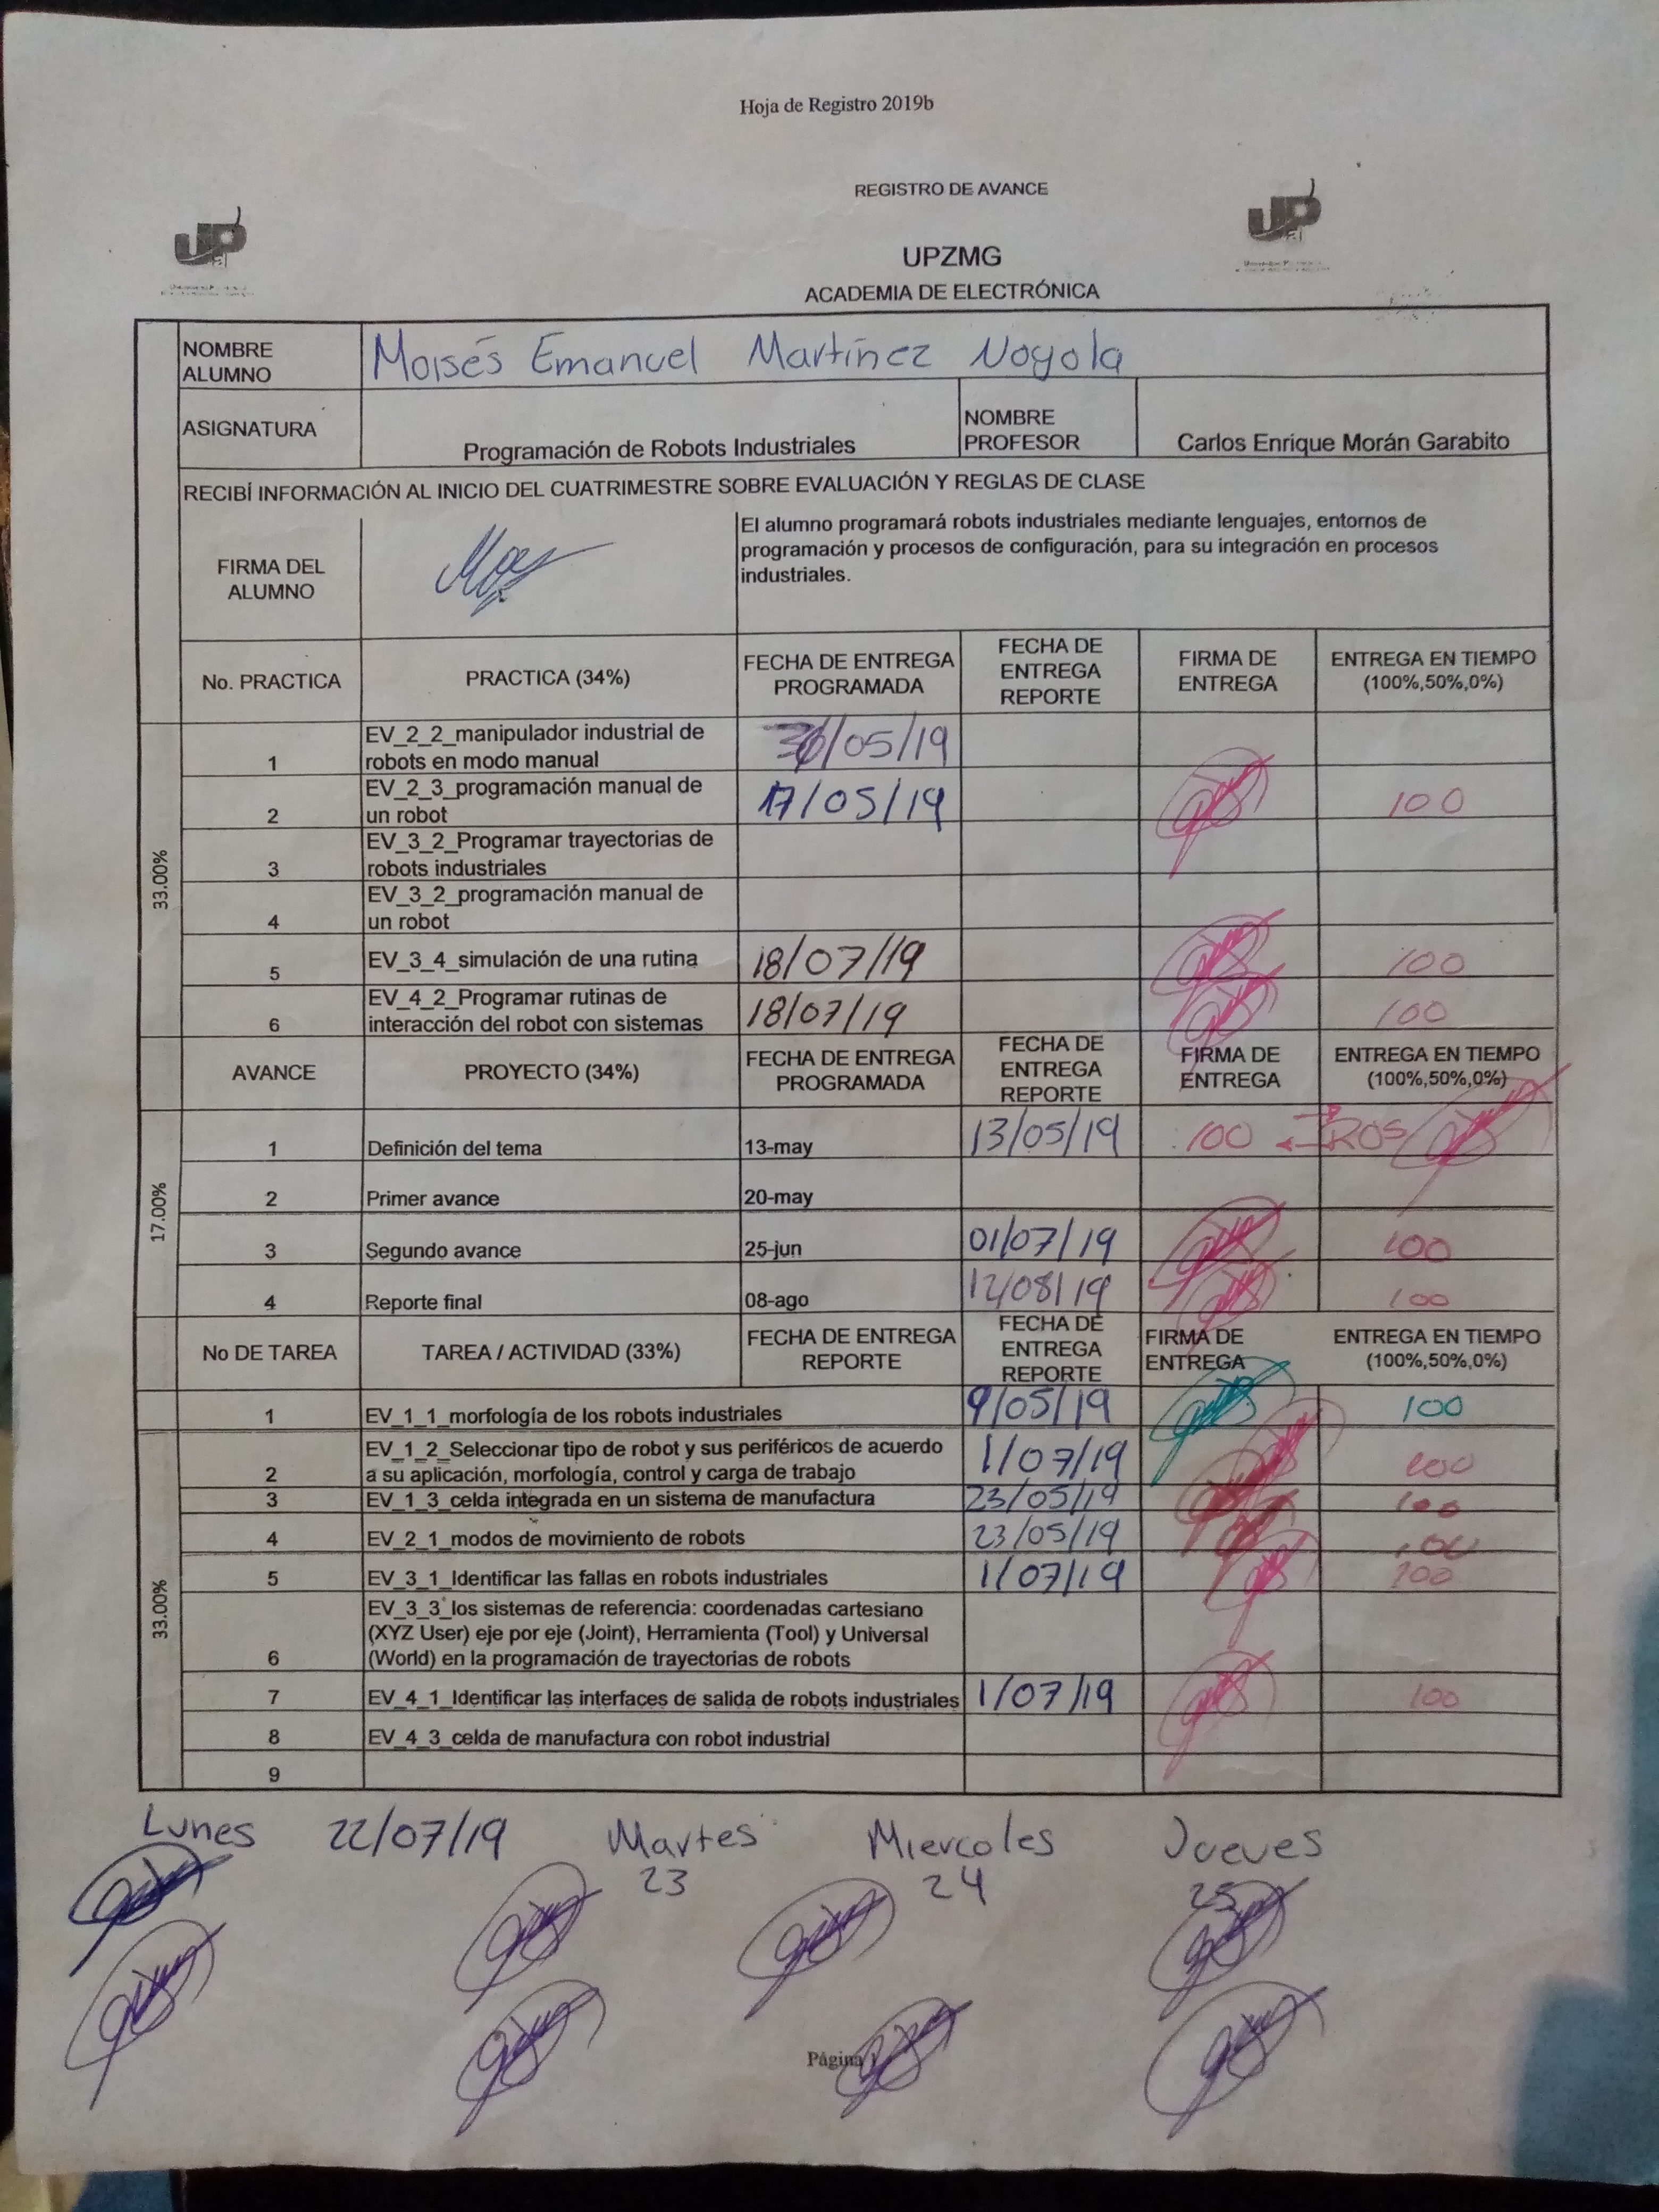 Hoja de Registro 2019b
REGISTRO DE AVANCE
UP
UP
UPZMG
ACADEMIA DE ELECTRÓNICA
NOMBRE ALUMNO Moisés Emanuel Martínez Noyola
ASIGNATURA Programación de Robots Industriales NOMBRE PROFESOR Carlos Enrique Morán Garabito
RECIBÍ INFORMACIÓN AL INICIO DEL CUATRIMESTRE SOBRE EVALUACIÓN Y REGLAS DE CLASE
FIRMA DEL ALUMNO
El alumno programará robots industriales mediante lenguajes, entornos de
programación y procesos de configuración, para su integración en procesos
industriales.
No. PRACTICA PRACTICA (34%) FECHA DE ENTREGA PROGRAMADA FECHA DE ENTREGA REPORTE FIRMA DE ENTREGA ENTREGA EN TIEMPO (100%,50%,0%)
33.00%
1 EV_2_2_manipulador industrial de robots en modo manual /05/19
2 EV_2_3_programación manual de un robot 17/05/19 100
3 EV_3_2_Programar trayectorias de robots industriales
4 EV_3_2_programación manual de un robot
5 EV_3_4_simulación de una rutina 18/07/19 100
6 EV_4_2_Programar rutinas de interacción del robot con sistemas 18/07/19 100
AVANCE PROYECTO (34%) FECHA DE ENTREGA PROGRAMADA FECHA DE ENTREGA REPORTE FIRMA DE ENTREGA ENTREGA EN TIEMPO (100%,50%,0%)
17.00%
1 Definición del tema 13-may 13/05/19 100 ROS
2 Primer avance 20-may
3 Segundo avance 25-jun 01/07/19 100
4 Reporte final 08-ago 12/08/19 100
No DE TAREA TAREA / ACTIVIDAD (33%) FECHA DE ENTREGA REPORTE FECHA DE ENTREGA REPORTE FIRMA DE ENTREGA ENTREGA EN TIEMPO (100%,50%,0%)
1 EV_1_1_morfología de los robots industriales 9/05/19 100
33.00%
2 EV_1_2_Seleccionar tipo de robot y sus periféricos de acuerdo a su aplicación, morfología, control y carga de trabajo 1/07/19 100
3 EV_1_3_celda integrada en un sistema de manufactura 23/05/19 100
4 EV_2_1_modos de movimiento de robots 23/05/19 100
5 EV_3_1_Identificar las fallas en robots industriales 1/07/19 100
6 EV_3_3_los sistemas de referencia: coordenadas cartesiano (XYZ User) eje por eje (Joint), Herramienta (Tool) y Universal (World) en la programación de trayectorias de robots
7 EV_4_1_Identificar las interfaces de salida de robots industriales 1/07/19 100
8 EV_4_3_celda de manufactura con robot industrial
9
Lunes 22/07/19 Martes Miercoles Jueves
23 24 25
Página 1